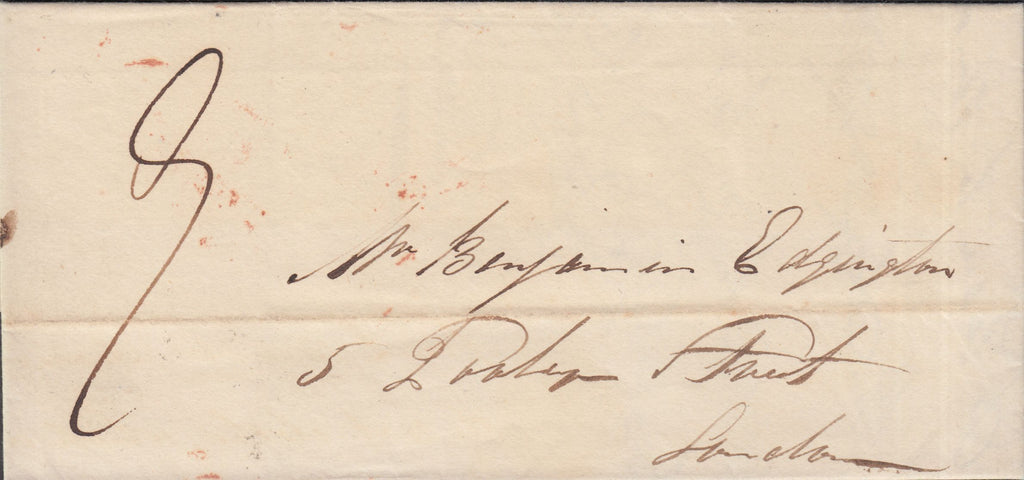 8
Mr Benjamin Edgington
5 Tooley Street
London